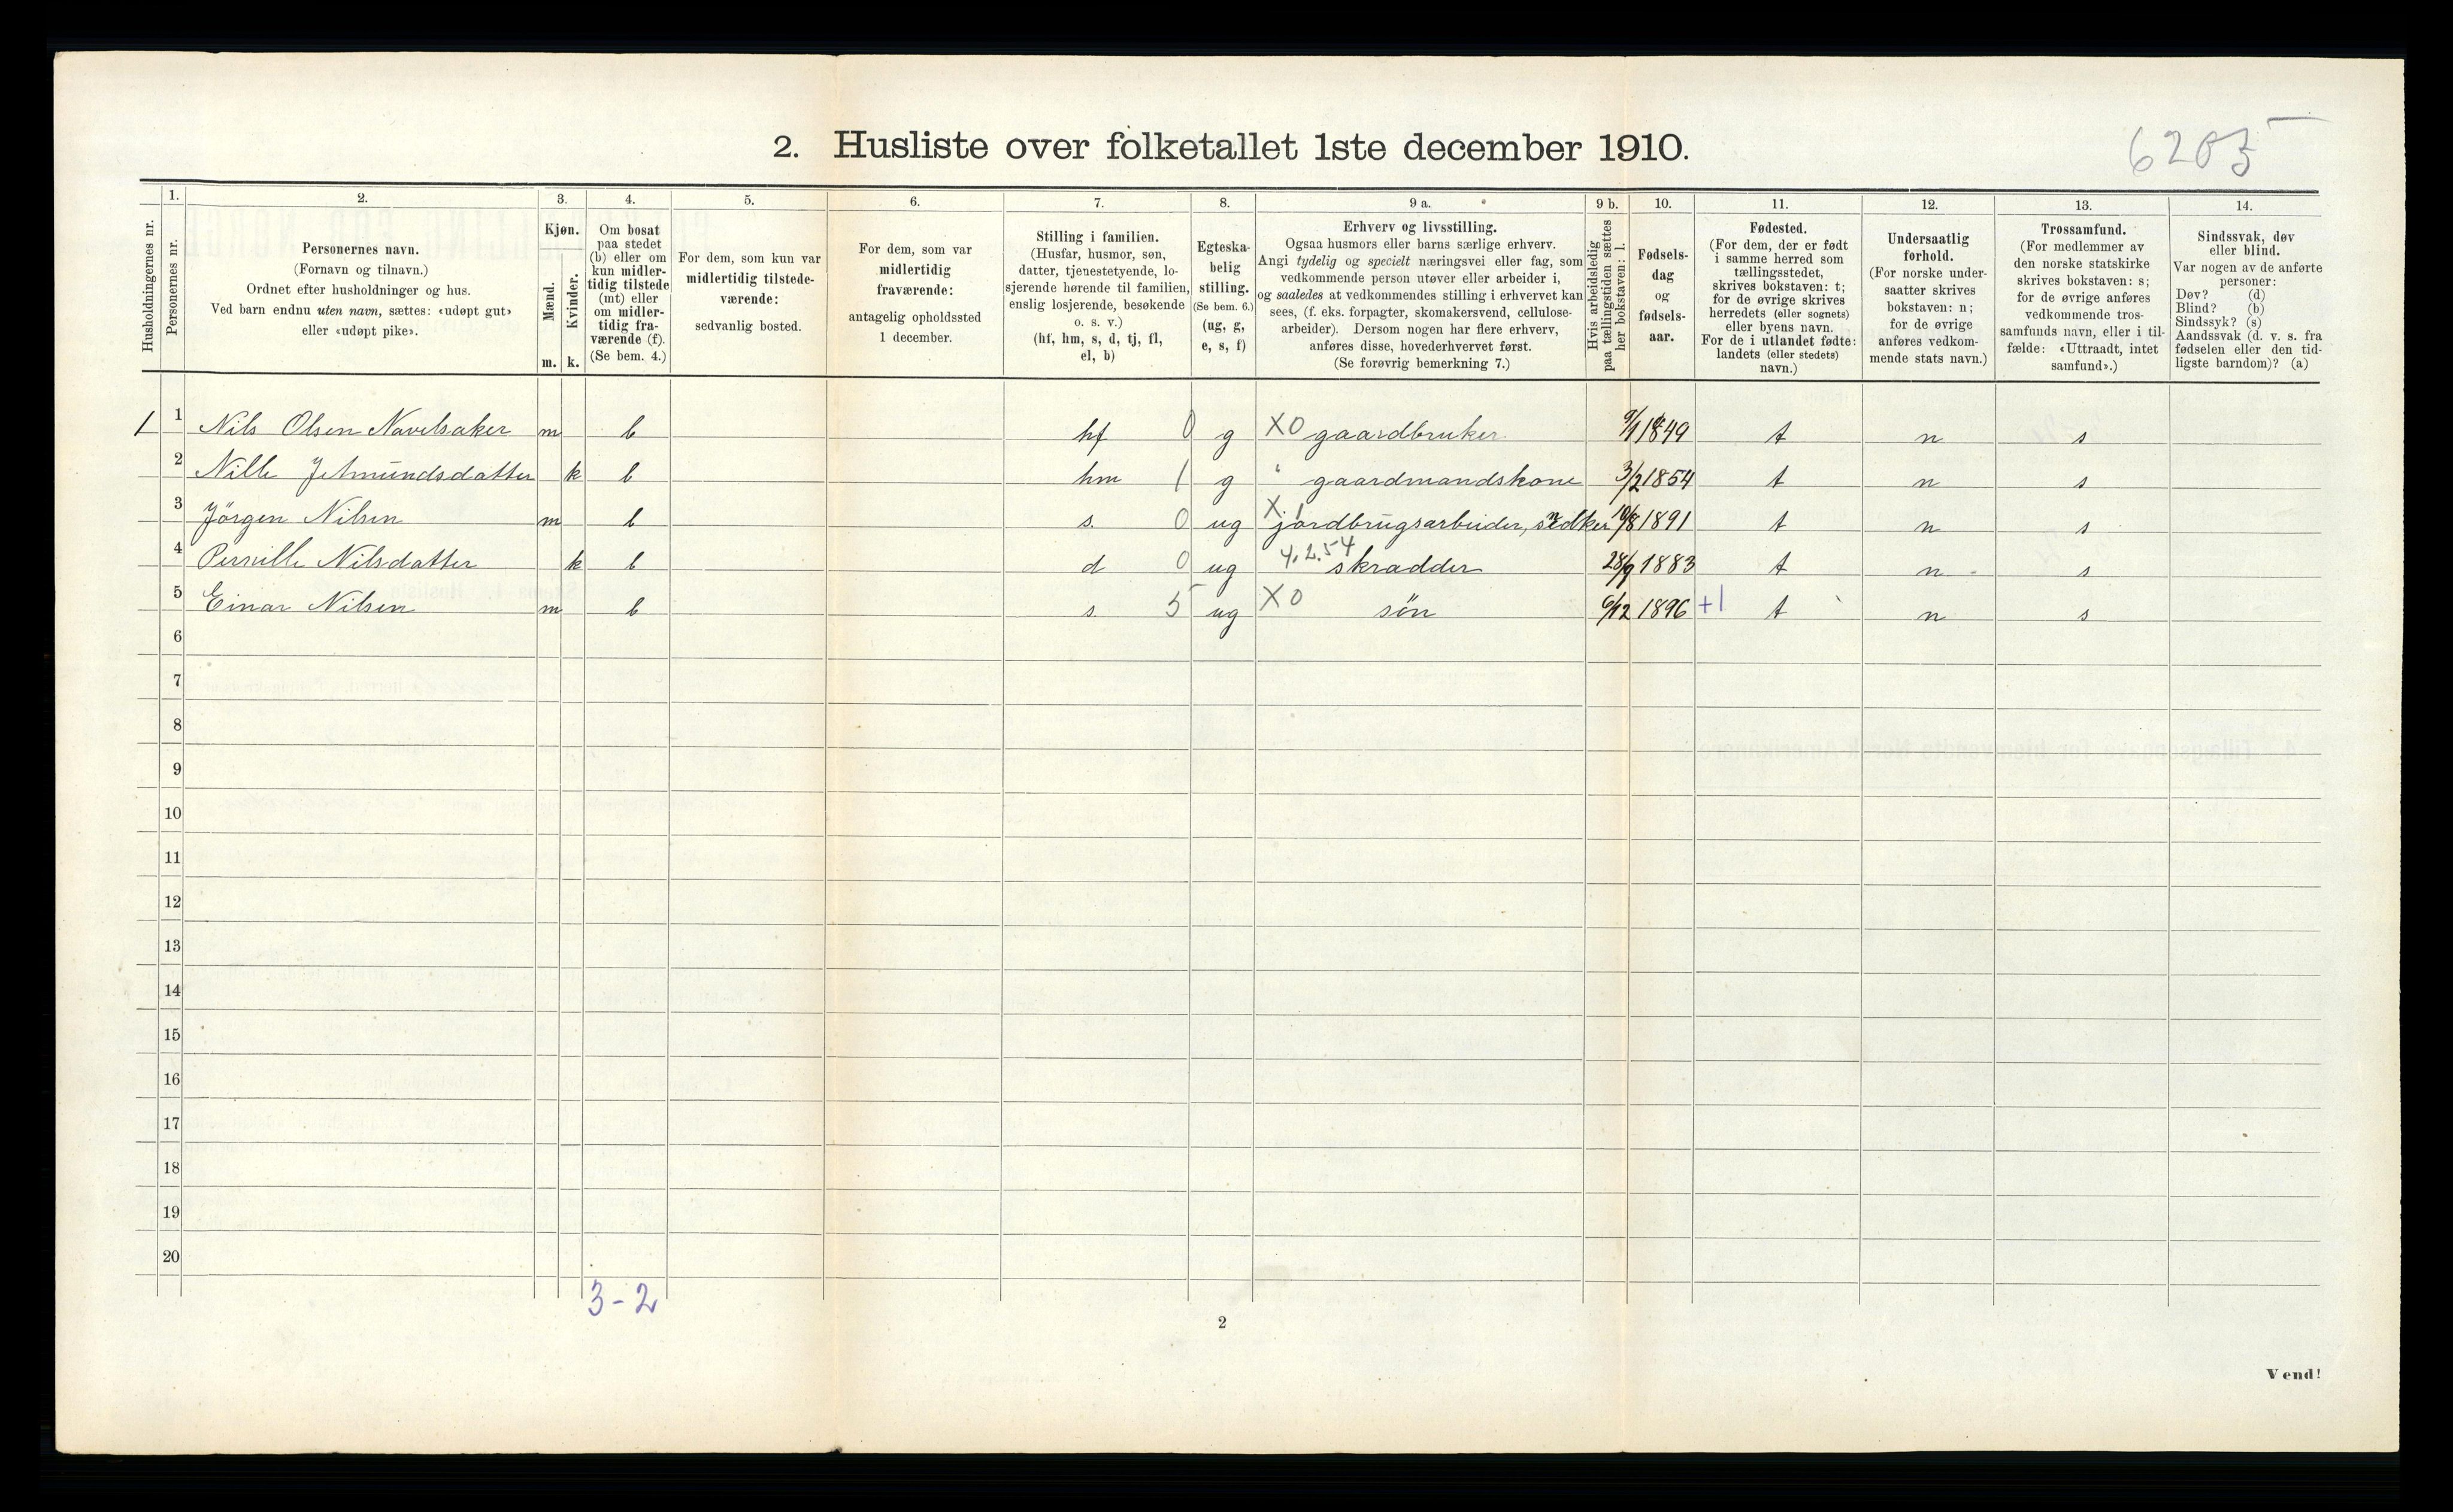 6203
2. Husliste over folketallet 1ste december 1910.
Husholdningernes nr.
1.
Personernes nr.
2.
Personernes navn.
(Fornavn og tilnavn.)
Ordnet efter husholdninger og hus.
Ved barn endnu uten navn, sættes: «udøpt gut»
eller «udøpt pike».
3.
Kjøn.
Mænd.
Kvinder.
m. k.
4.
Om bosat
paa stedet
(b) eller om
kun midler-
tidig tilstede
(mt) eller
om midler-
tidig fra-
værende (f).
(Se bem. 4.)
5.
For dem, som kun var
midlertidig tilstede-
værende:
sedvanlig bosted.
6.
For dem, som var
midlertidig
fraværende:
antagelig opholdssted
1 december.
7.
Stilling i familien.
(Husfar, husmor, søn,
datter, tjenestetyende, lo-
sjerende hørende til familien,
enslig losjerende, besøkende
o. s. v.)
(hf, hm, s, d, tj, fl,
el, b)
8.
Egteska-
belig
stilling.
(Se bem. 6.)
(ug, g,
e, s, f)
9 a.
Erhverv og livsstilling.
Ogsaa husmors eller barns særlige erhverv.
Angi tydelig og specielt næringsvei eller fag, som
vedkommende person utøver eller arbeider i,
og saaledes at vedkommendes stilling i erhvervet kan
sees, (f. eks. forpagter, skomakersvend, cellulose-
arbeider). Dersom nogen har flere erhverv,
anføres disse, hovederhvervet først.
(Se forøvrig bemerkning 7.)
9 b.
Hvis arbeidsledig
paa tællingstiden sættes
her bokstaven: l.
10.
Fødsels-
dag
og
fødsels-
aar.
11.
Fødested.
(For dem, der er født
i samme herred som
tællingsstedet,
skrives bokstaven: t;
for de øvrige skrives
herredets (eller sognets)
eller byens navn.
For de i utlandet fødte:
landets (eller stedets)
navn.)
12.
Undersaatlig
forhold.
(For norske under-
saatter skrives
bokstaven: n;
for de øvrige
anføres vedkom-
mende stats navn.)
13.
Trossamfund.
(For medlemmer av
den norske statskirke
skrives bokstaven: s;
for de øvrige anføres
vedkommende tros-
samfunds navn, eller i til-
fælde: «Uttraadt, intet
samfund».)
14.
Sindssvak, døv
eller blind.
Var nogen av de anførte
personer:
Døv? (d)
Blind? (b)
Sindssyk? (s)
Aandssvak (d. v. s. fra
fødselen eller den tid-
ligste barndom)? (a)
1 1 Nils Olsen Navelsaker m b hf 0 g X0 gaardbruker 9/1 1849 t n s
2 Nille Jetmundsdatter k b hm 1 g " gaardmandskone 3/2 1854 t n s
3 Jörgen Nilsen m b s. 0 ug X 1 jordbrugsarbeider, 10/8 1891 t n s
4 Pernille Nilsdatter k b d 0 ug 4.2.54 skradder 28/9 1883 t n s
5 Einar Nilsen m b s. 5 ug X0 sön 6/12 1896 +1 t n s
6
7
8
9
10
11
12
13
14
15
16
17
18
19
20
3-2
2
Vend!